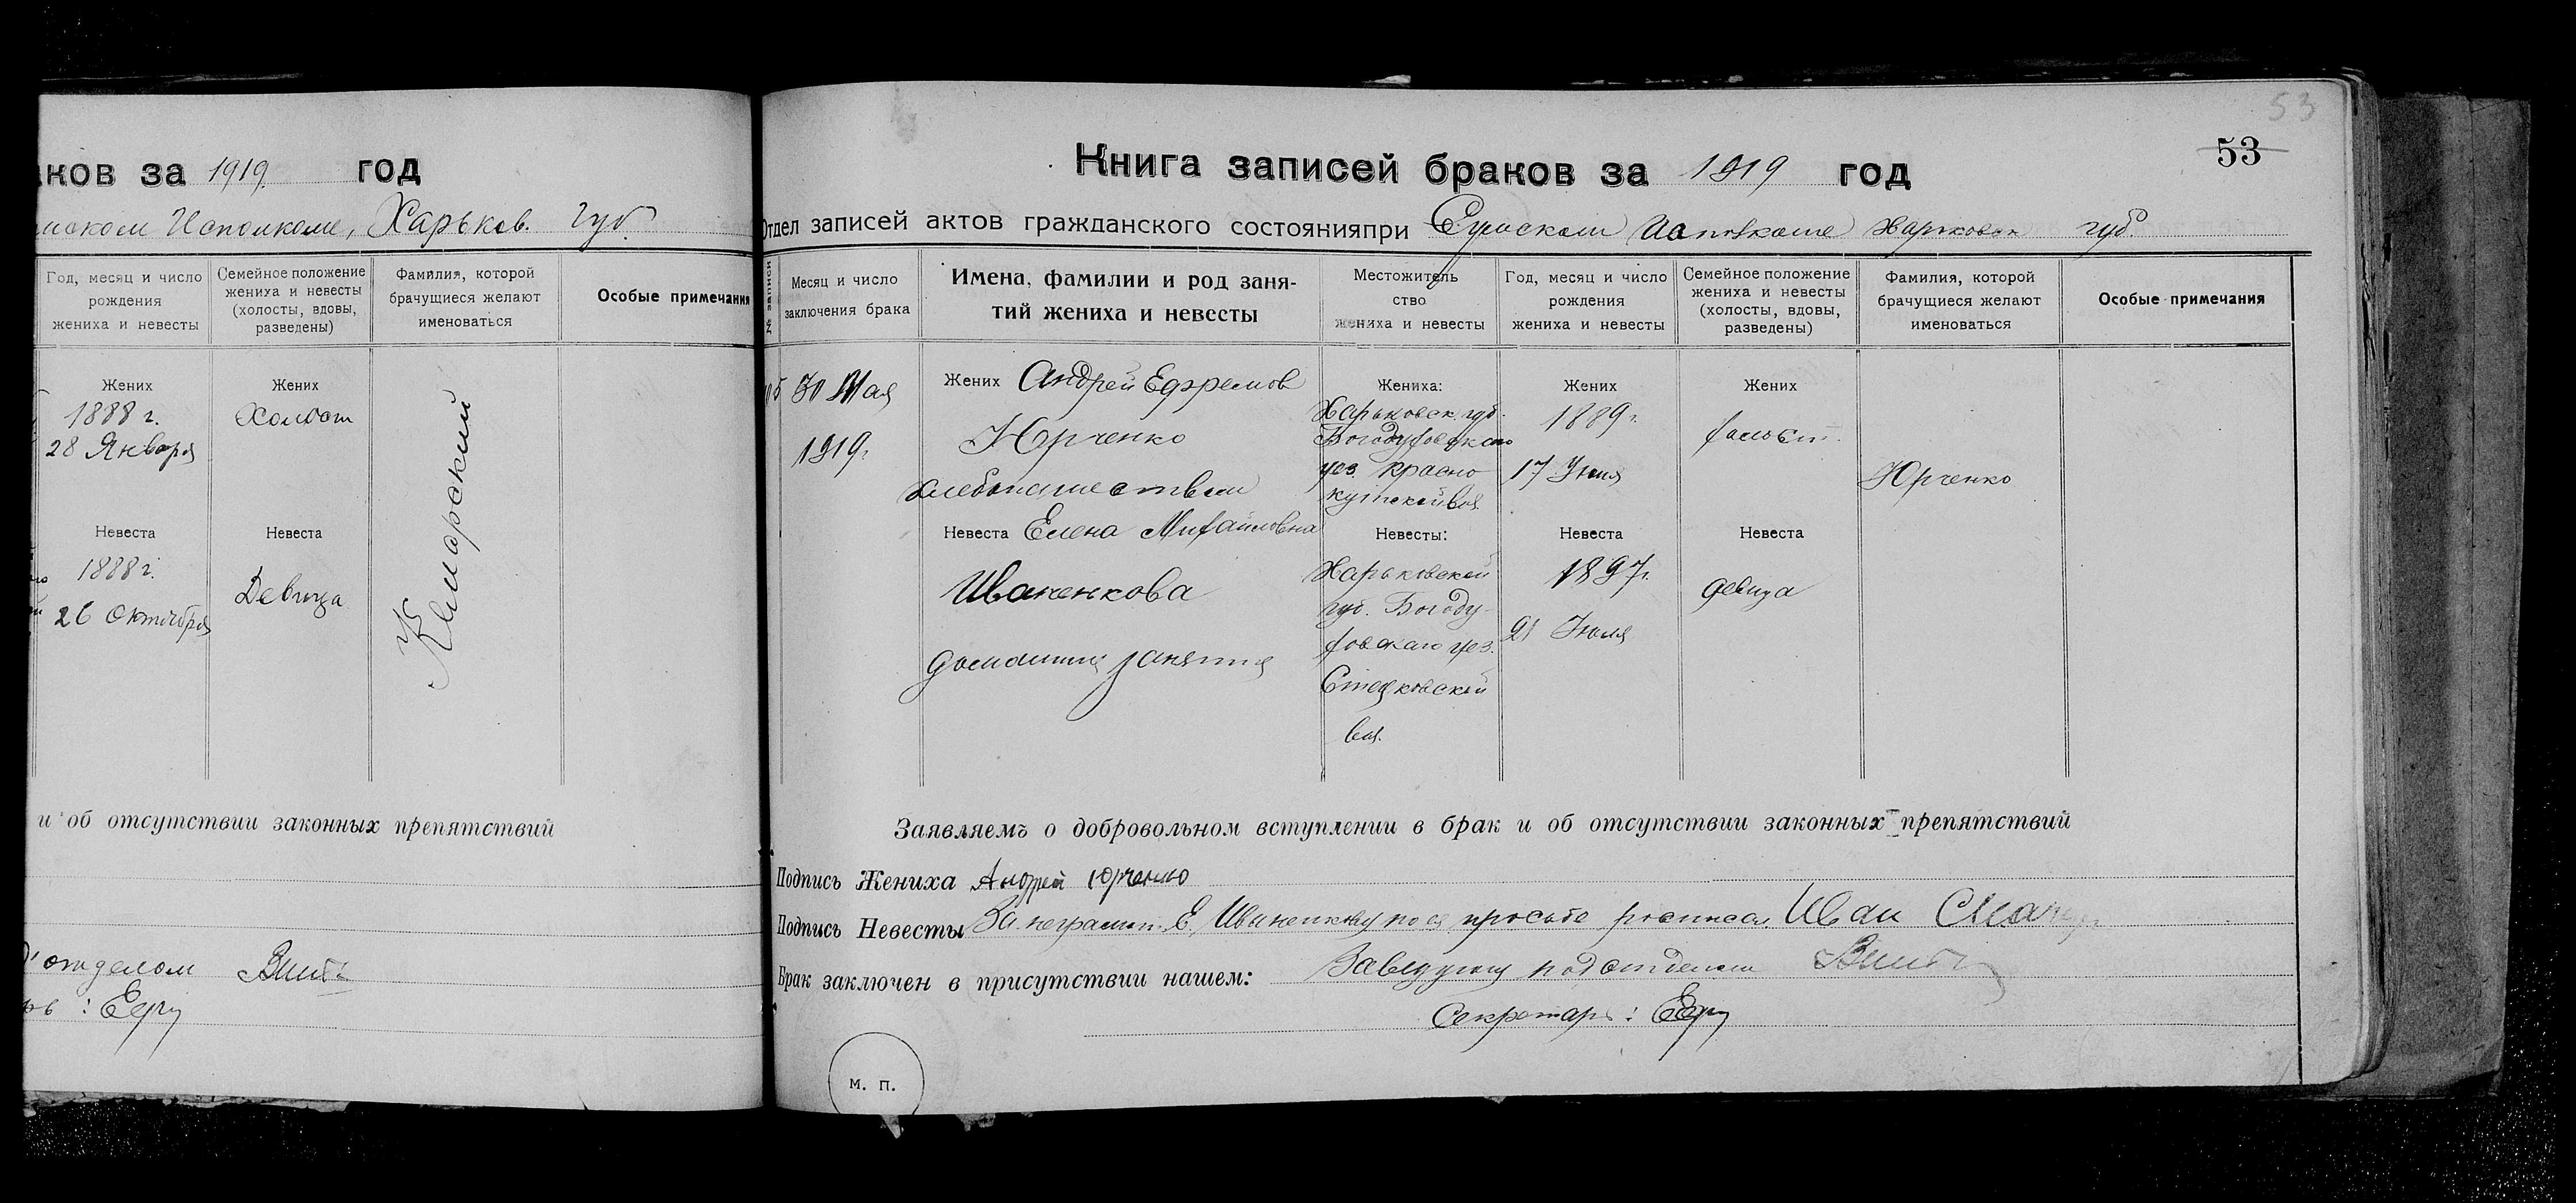 ков за 1919 год
Исполкоме, Харьков. Губ.
Год, месяц и число рождения жениха и невесты
Семейное положение жениха и невесты (холосты, вдовы, разведены)
Фамилия, которой брачущиеся желают именоваться
Особые примечания
Жених
1888 г.
28 Января
Жених
Холост
Невеста
1888 г.
26 Октября
Невеста
Девица
и об отсутствии законных препятствий
отделом
53
53
Книга записей браков за 1919 год
Отдел записей актов гражданского состоянияпри Сумском Исполкоме Харьковск губ.
№ записи
Месяц и число заключения брака
Имена, фамилии и род занятий жениха и невесты
Местожительство жениха и невесты
Год, месяц и число рождения жениха и невесты
Семейное положение жениха и невесты (холосты, вдовы, разведены)
Фамилия, которой брачущиеся желают именоваться
Особые примечания
30 Мая
1919 г.
Жених Андрей Ефремов
Юрченко
хлебопашеством
Жениха:
Харьковск. губ.
Богодуховского
уез. Красно
кутской вол.
Жених
1889 г.
Жених
холост.
Юрченко
Невеста Елена Михайловна
Иваненкова
домашния занятия
Невесты:
Харьковской
губ. Богоду-
ховского уез.
вол.
Невеста
1897 г.
21 Июля
Невеста
девица
Заявляемъ о добровольном вступлении в брак и об отсутствии законных препятствий
Подпись Жениха Андрей Юрченко
Подпись Невесты За неграмот. Е. Иваненкову по ея просьбе росписал. Иван
Брак заключен в присутствии нашем: Заведующ подотделом
Секретарь:
м. п.